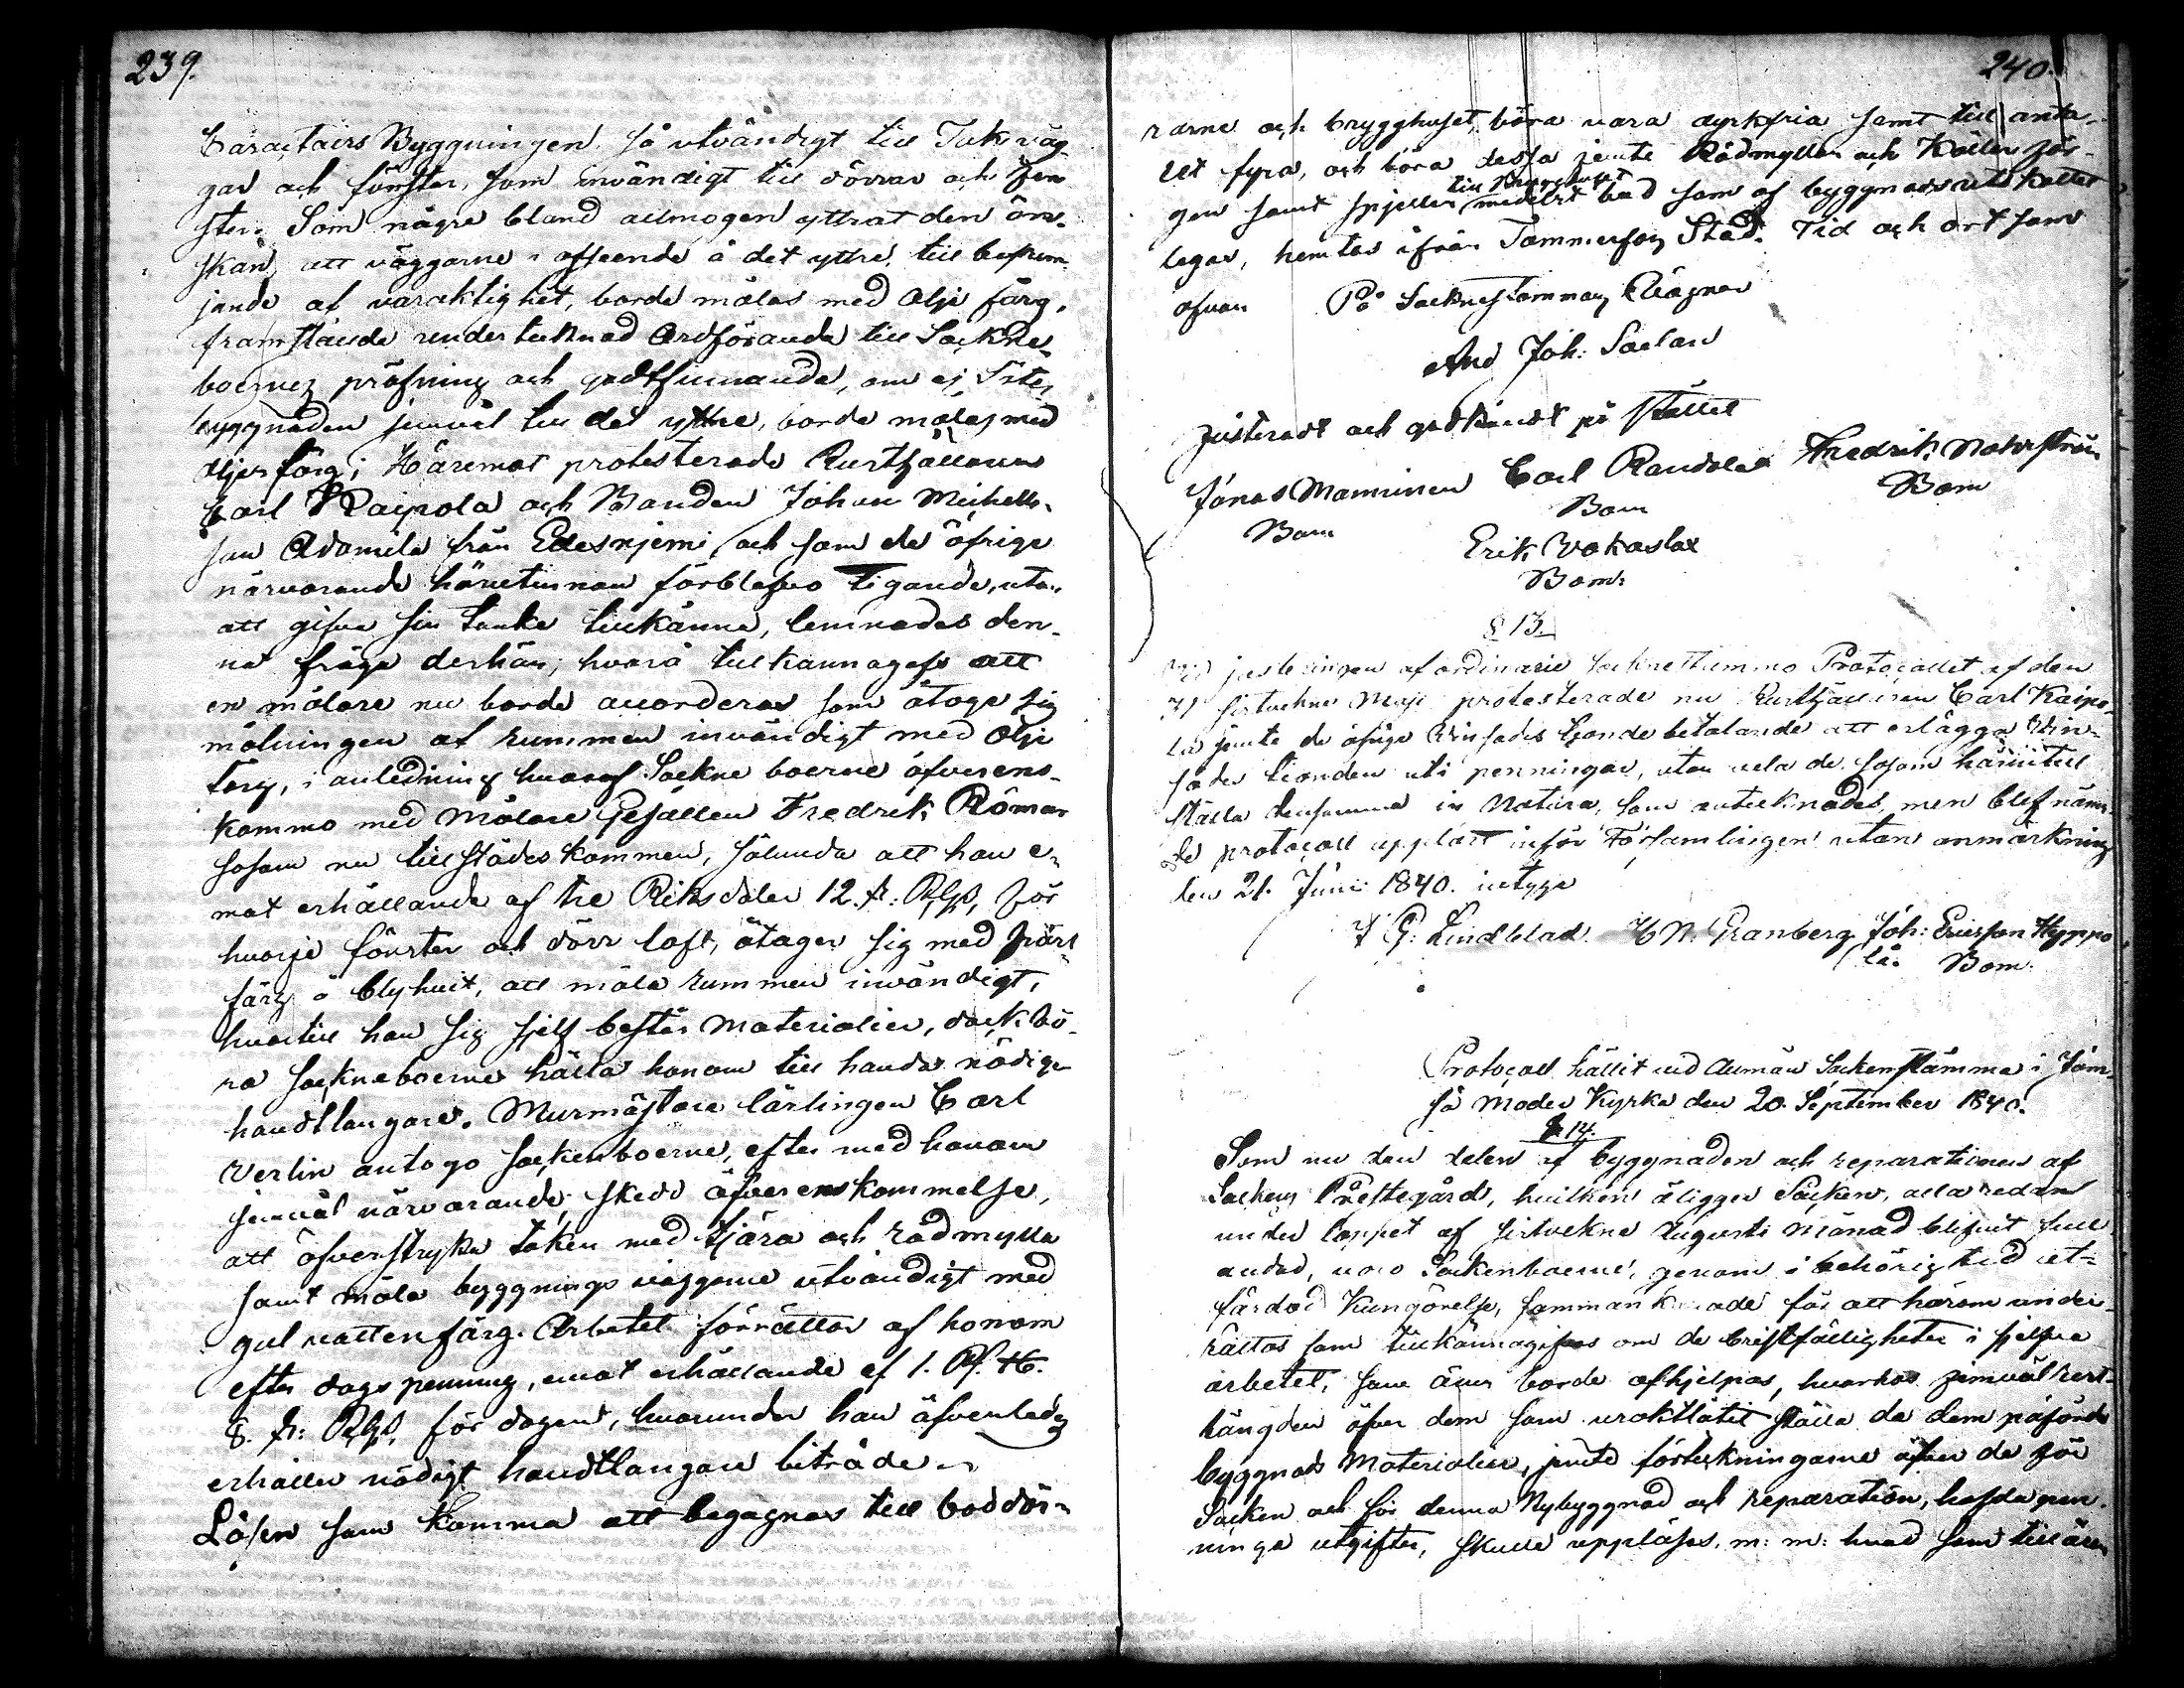 239.
Caractairs Byggningen så utvändigt till Tak väg-
gar och fönster, som invändigt till dörrar och fen
ster. Som någre bland allmogen yttrat den ön-
skan, att väggarne i afseende å det yttre, till befrem
jande af varaktighet, borde målas med Olje färg,
framstälde undertecknad Ordförande till Sockne-
boernes pröfning och godtfinnande, om ej
byggnaden jemväl till det yttre, borde målas med
oljefärg; Häremot protesterade Rusthållaren
Carl Kaipola och Bonden Johan Michells-
son Adamila från Edesnjemi, och som de öfrige
närvarande härutinnan förblefvo tigande, utan
att gifva sin tanke tillkänna, lemnades den-
na fråga derhän; hvarå tillkännagafs att
en målare nu borde accorderas som åtoge sig
målningen af rummen invändigt med Olje
färg, i anledning hvaraf Sockneboerne öfverens-
kommo med Målare Gesällen Fredrik Römar
sosom nu tillstädes kommen, sålunda att han e-
mot erhållande af tre Riksdaler 12. s: Rgs, för
hvarje fönster och dörr loft, åtager sig med Pärl
färg å blyhvit, att måla rummen invändigt,
hvartill han sig sjelf består Materialier, dock bö-
ra sockneboerne hålla honom till handa nödige
handtlangare. Murmästare lärlingen Carl
Verlin antogo sockenboerne, efter med honom
jemväl närvarande, skedd öfverenskommelse,
att öfverstryka taken med tjära och rödmylla
samt måla byggnings väggarne utvändigt med
gul vattenfärg. Arbetet förrättas af honom
efter dags penning, emot erhållande af 1. Rd.
8. s: Rgs, för dagen, hvarunder han äfvenledes
erhåller nödigt handtlangare biträde.
Låsen som komma att begagnas till boddör-
240.
rarne och brygghuset, böra vara dyrkfria samt till anta-
let fyra, och böra dessa jemte Rödmyllan och Källen för-
gen samt spjellen till medelst bud som af byggnads utskottet
legas, hemtas ifrån Tammerfors Stad. Tid och ort som
ofvan På Socknestämmans Wägnar
And Joh: Saelan
Justeradt och godkändt på stället
Jonas Manninen Carl Randala Fredrik Naterström
Bom Bom Bom
Erik Wakaslax
Bom:
§ 13.
Vid justeringen af ordinarie Socknestämmo Protocollet af den
31 sistvekne Maji protesterade nu Rusthållaren Carl Kaipo-
la jemte de öfrige Vinsäds tionde betalande att erlägga Vin-
säds tionden uti penningar, utan vela de sosom härintill
ställa densamma in Natura, som antecknades, men blef näm-
de protocoll uppläst inför Församlingen utan anmärkning
den 21. Junii 1840. intyga
J G: Lindblad. H N. Granberg Joh: Ericsson Hyppö
lä. Bom.
Protocoll hållit vid Allmän Sockenstämma i Jäm-
sä Moder Kyrka den 20. September 1840.
§ 14.
Som nu den delen af byggnaden och reparationen af
Sockens Prestegård, hvilken åligger Socken, alla redan
under loppet af sistvekne Augusti Månad blifvit full
ändad, voro Sockenboerne, genom i behörig tid ut-
färdad Kungörelse, sammankallade för att härom under-
rättas som tillkännagifves om de bristfälligheter i sjelfva
arbetet, som ännu borde afhjelpas, hvarhos jemväl rest-
längden öfver dem som uraktlåtit ställa de dem påförde
byggnads Materialier, jemte förteckningarne öfver de för
Socken och för denna Nybyggnad och reparation, hafda pen-
ninge utgifter, skulle uppläsas. m: m: hvad som till ären